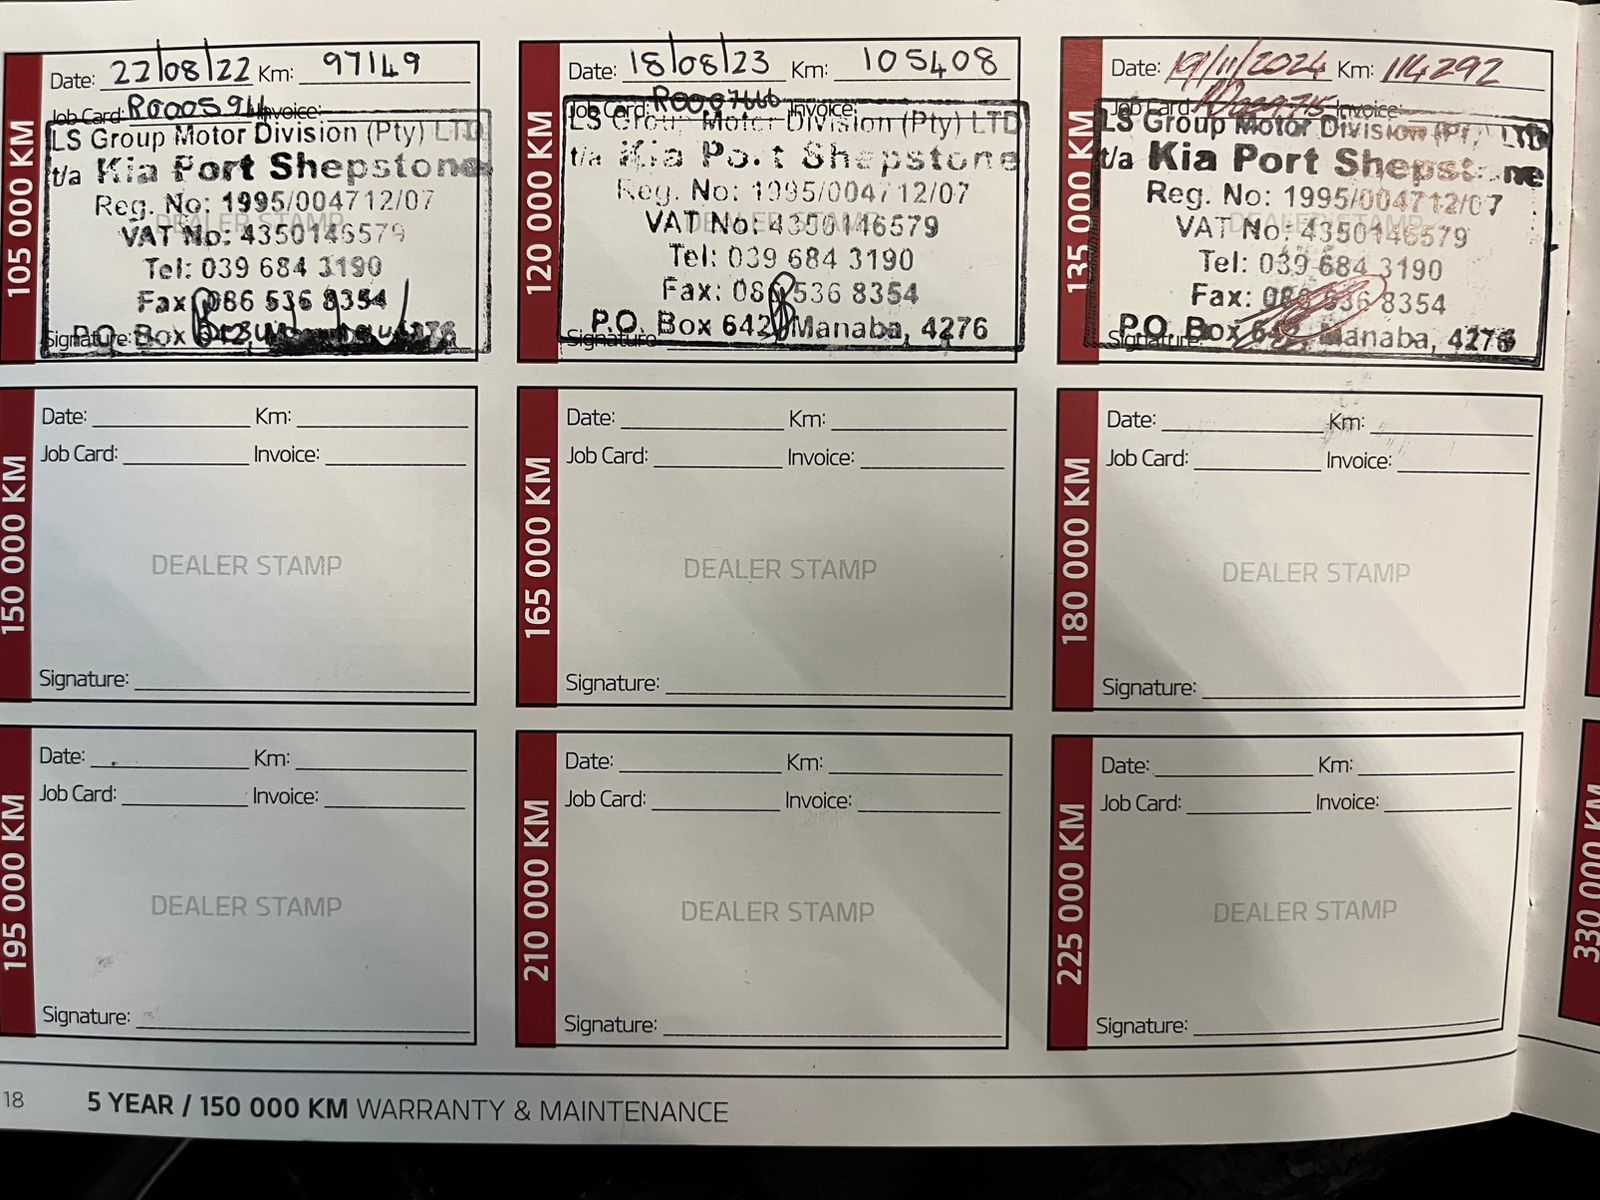 105 000 KM
Date: 22/08/22 Km: 97149
Job Card: Invoice:
LS Group Motor Division (Pty) LTD
t/a Kia Port Shepstone
Reg. No: 1995/004712/07
DEALER STAMP
VAT No: 4350146579
Tel: 039 684 3190
Fax 086 536 8354
Signature: P.O. Box
120 000 KM
Date: 18/08/23 Km: 105408
Job Card: Invoice:
LS Group Motor Division (Pty) LTD
t/a Kia Port Shepstone
Reg. No: 1995/004712/07
DEALER STAMP
VAT No: 4350146579
Tel: 039 684 3190
Fax: 086 536 8354
P.O. Box 642 Manaba, 4276
Signature:
135 000 KM
Date: 19/11/2024 Km: 114292
Job Card: Invoice:
LS Group Motor Division (Pty) LTD
t/a Kia Port Shepstone
Reg. No: 1995/004712/07
DEALER STAMP
VAT No: 4350146579
Tel: 039 684 3190
Fax: 086 536 8354
P.O. Box 642, Manaba, 4276
Signature:
150 000 KM
Date: Km:
Job Card: Invoice:
DEALER STAMP
Signature:
165 000 KM
Date: Km:
Job Card: Invoice:
DEALER STAMP
Signature:
180 000 KM
Date: Km:
Job Card: Invoice:
DEALER STAMP
Signature:
195 000 KM
Date: Km:
Job Card: Invoice:
DEALER STAMP
Signature:
210 000 KM
Date: Km:
Job Card: Invoice:
DEALER STAMP
Signature:
225 000 KM
Date: Km:
Job Card: Invoice:
DEALER STAMP
Signature:
330 000 KM
18 5 YEAR / 150 000 KM WARRANTY & MAINTENANCE